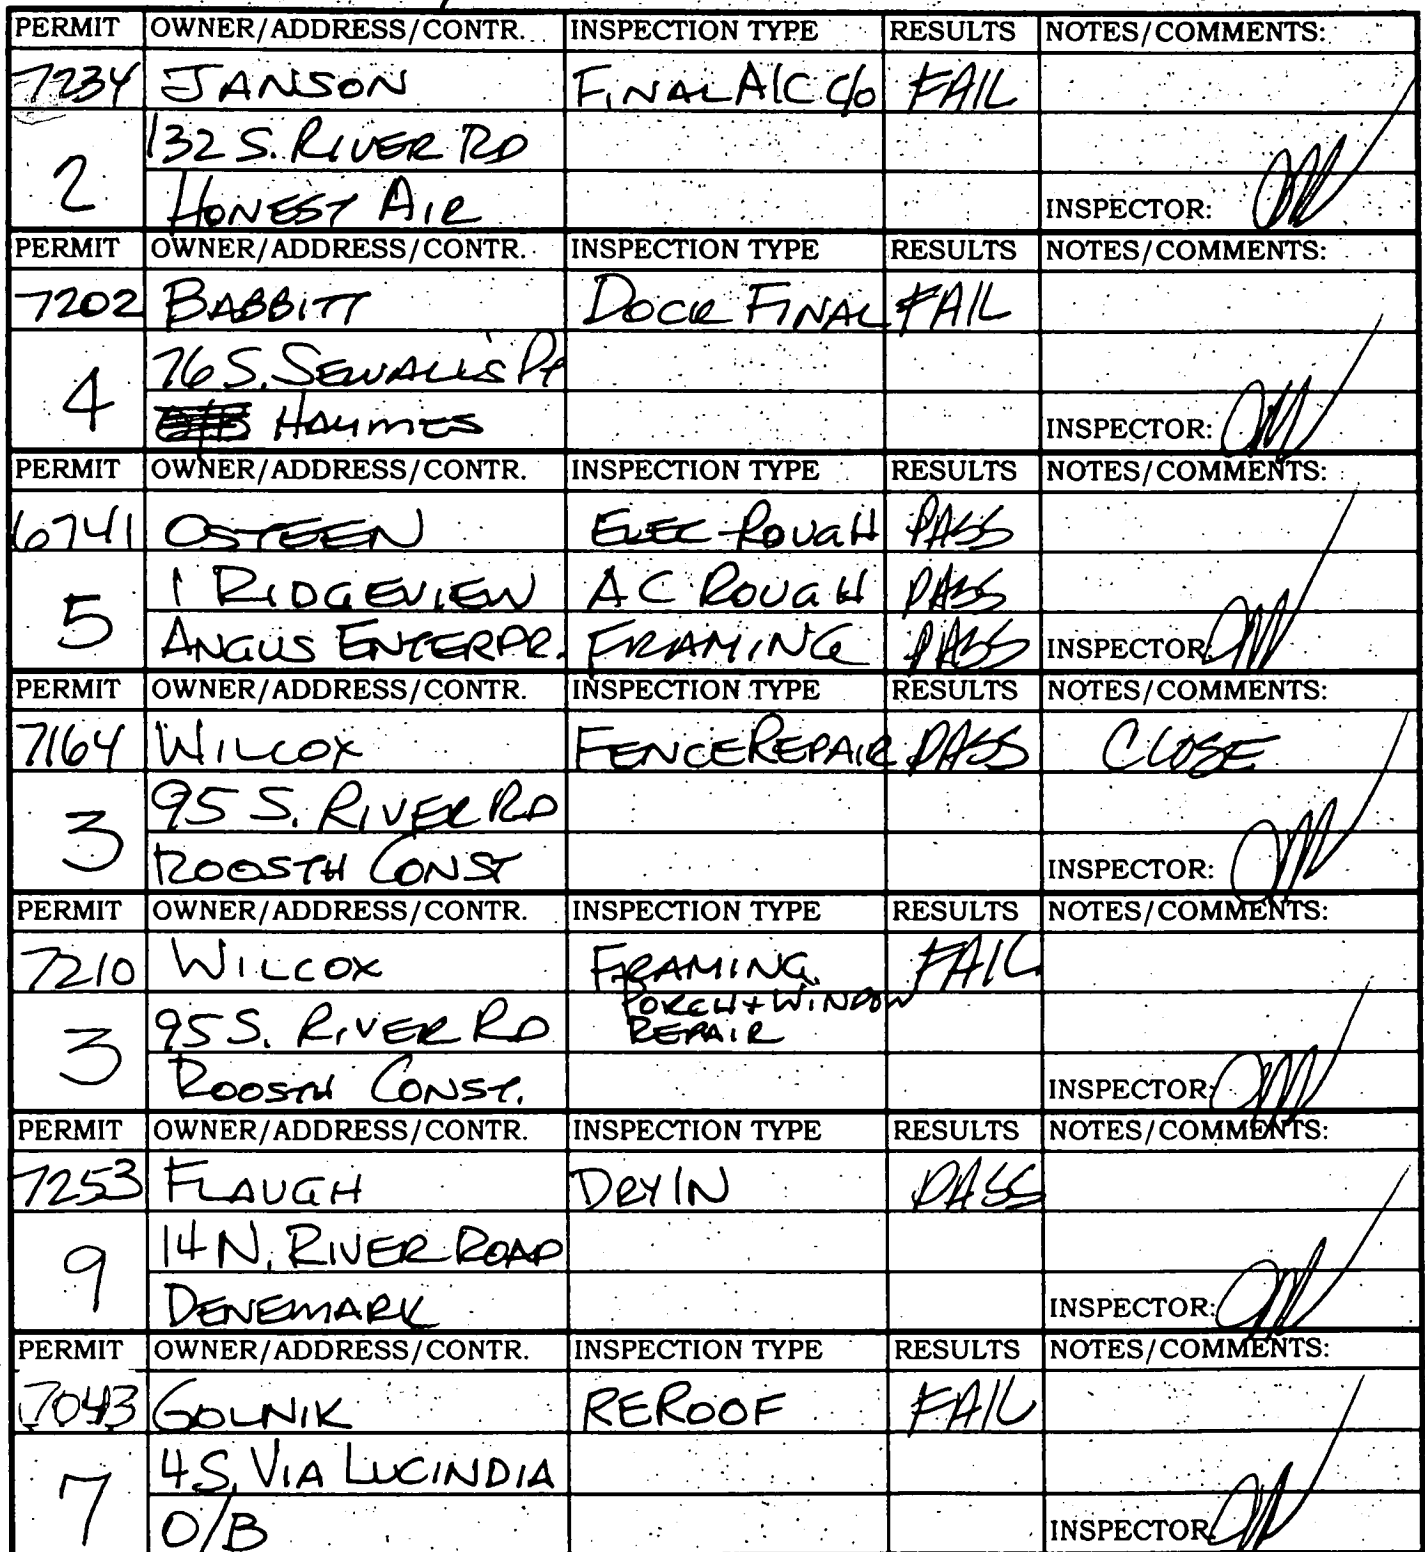 PERMIT OWNER/ADDRESS/CONTR. INSPECTION TYPE RESULTS NOTES/COMMENTS:
7234 JANSON FINAL A/C C/O FAIL
132 S. RIVER RD
2 HONEST AIR INSPECTOR:
PERMIT OWNER/ADDRESS/CONTR. INSPECTION TYPE RESULTS NOTES/COMMENTS:
7202 BABBITT DOCK FINAL FAIL
76 S. SEWALL'S PT
4 HAYMES INSPECTOR:
PERMIT OWNER/ADDRESS/CONTR. INSPECTION TYPE RESULTS NOTES/COMMENTS:
6741 OSTEEN ELEC ROUGH PASS
1 RIDGEVIEW AC ROUGH PASS
5 ANGUS ENTERPR. FRAMING PASS INSPECTOR:
PERMIT OWNER/ADDRESS/CONTR. INSPECTION TYPE RESULTS NOTES/COMMENTS:
7164 WILCOX FENCE REPAIR PASS CLOSE
95 S. RIVER RD
3 ROOSTH CONST INSPECTOR:
PERMIT OWNER/ADDRESS/CONTR. INSPECTION TYPE RESULTS NOTES/COMMENTS:
7210 WILCOX FRAMING FAIL
PORCH + WINDOW
95 S. RIVER RD REPAIR
3 ROOSTH CONST. INSPECTOR:
PERMIT OWNER/ADDRESS/CONTR. INSPECTION TYPE RESULTS NOTES/COMMENTS:
7253 FLAUGH DRY IN PASS
14 N. RIVER ROAD
9 DENEMARK INSPECTOR:
PERMIT OWNER/ADDRESS/CONTR. INSPECTION TYPE RESULTS NOTES/COMMENTS:
7043 GOLNIK REROOF FAIL
4 S. VIA LUCINDIA
7 O/B INSPECTOR: